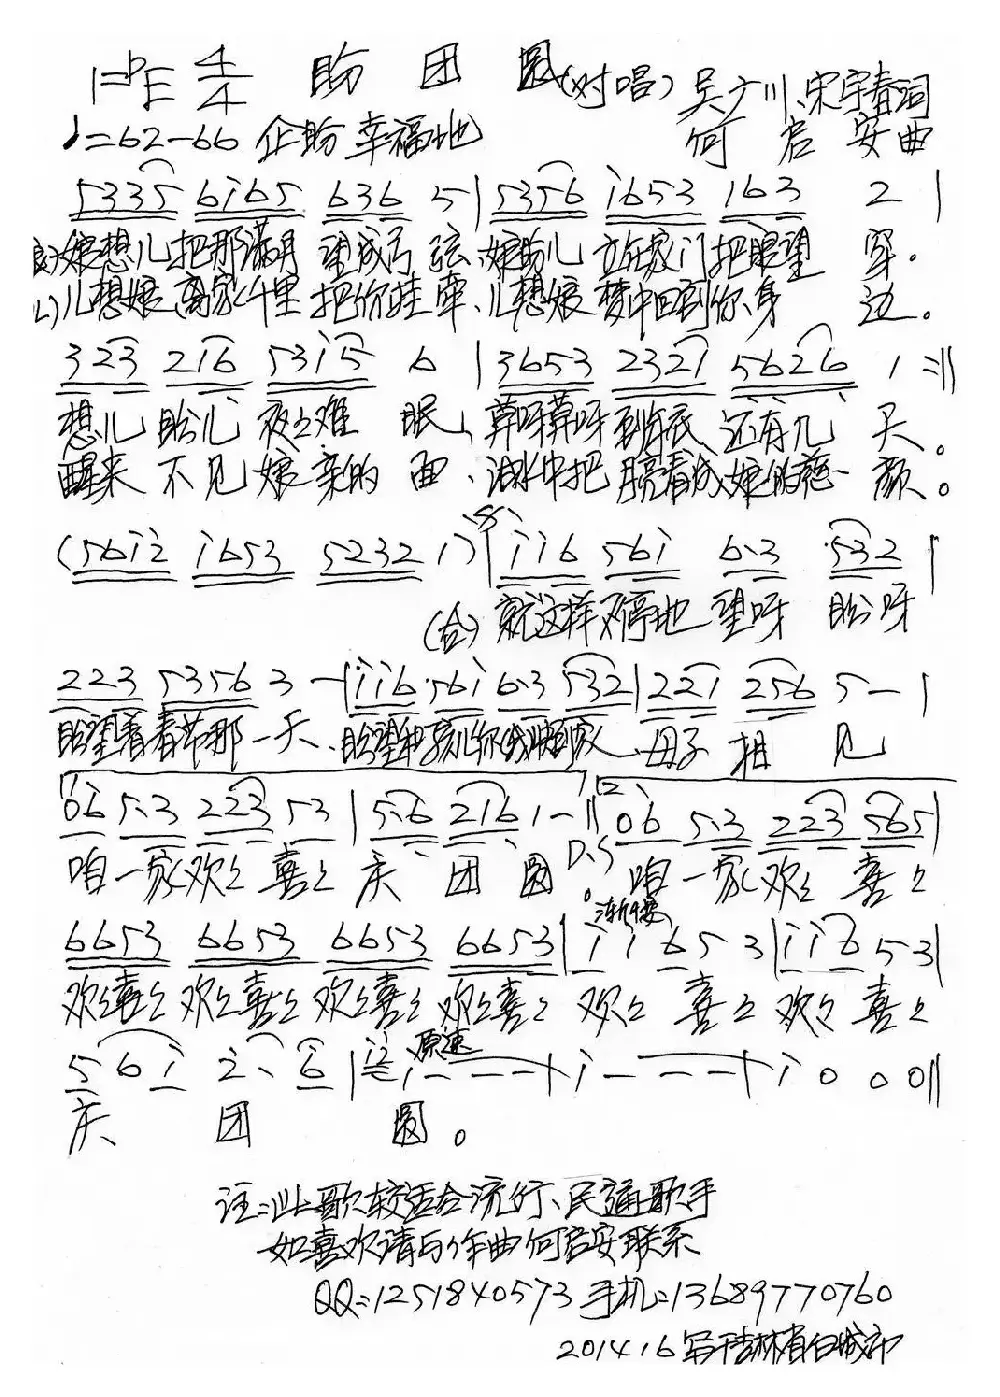 1=♭E 4/4 盼团圆(对唱) 吴广川、宋宇春词
♩=62-66 企盼 幸福地 何启安曲
5335 6i65 636 5 | 5356 i653 163 2 |
娘想儿把那满月 望成弓弦、娘盼儿 立在家门把眼望 穿。
2)儿想娘离家千里 把你挂牵、儿想娘 梦中回到你身 边。
323 216 5315 6 | 3653 2321 5626 1 :||
想儿盼儿 夜々难 眠、算呀算呀到年底、还有几 天。
醒来 不见 娘亲的 面、泪水中把 月亮看成娘的慈 颜。
(56i2 i653 5232 1) | ii6 56i 6·3 532 |
(合) 就这样不停地 望呀 盼呀
223 5356 3 - | ii6 56i 6·3 532 | 221 256 5 - |
盼望着春节那一天、盼望 母子 相 见
06 5·3 223 53 | 5·6 216 1 - || 06 5·3 223 565 |
咱一家欢々喜々 庆 团 圆 D.S. 咱一家欢々 喜々
6653 6653 6653 6653 | i i 6 5 3 | i i 6 5 3 |
欢々喜々 欢々喜々 欢々喜々 欢々喜々 欢々 喜々 欢々 喜々
5 6 i 2· 6 | i2 原速 i - - - | i - - - | i 0 0 0 ||
庆 团 圆。
注:此歌较适合流行、民通歌手
如喜欢请与作曲何启安联系
QQ:1251840573 手机:13689770760
2014.1.6 写于吉林省白城市